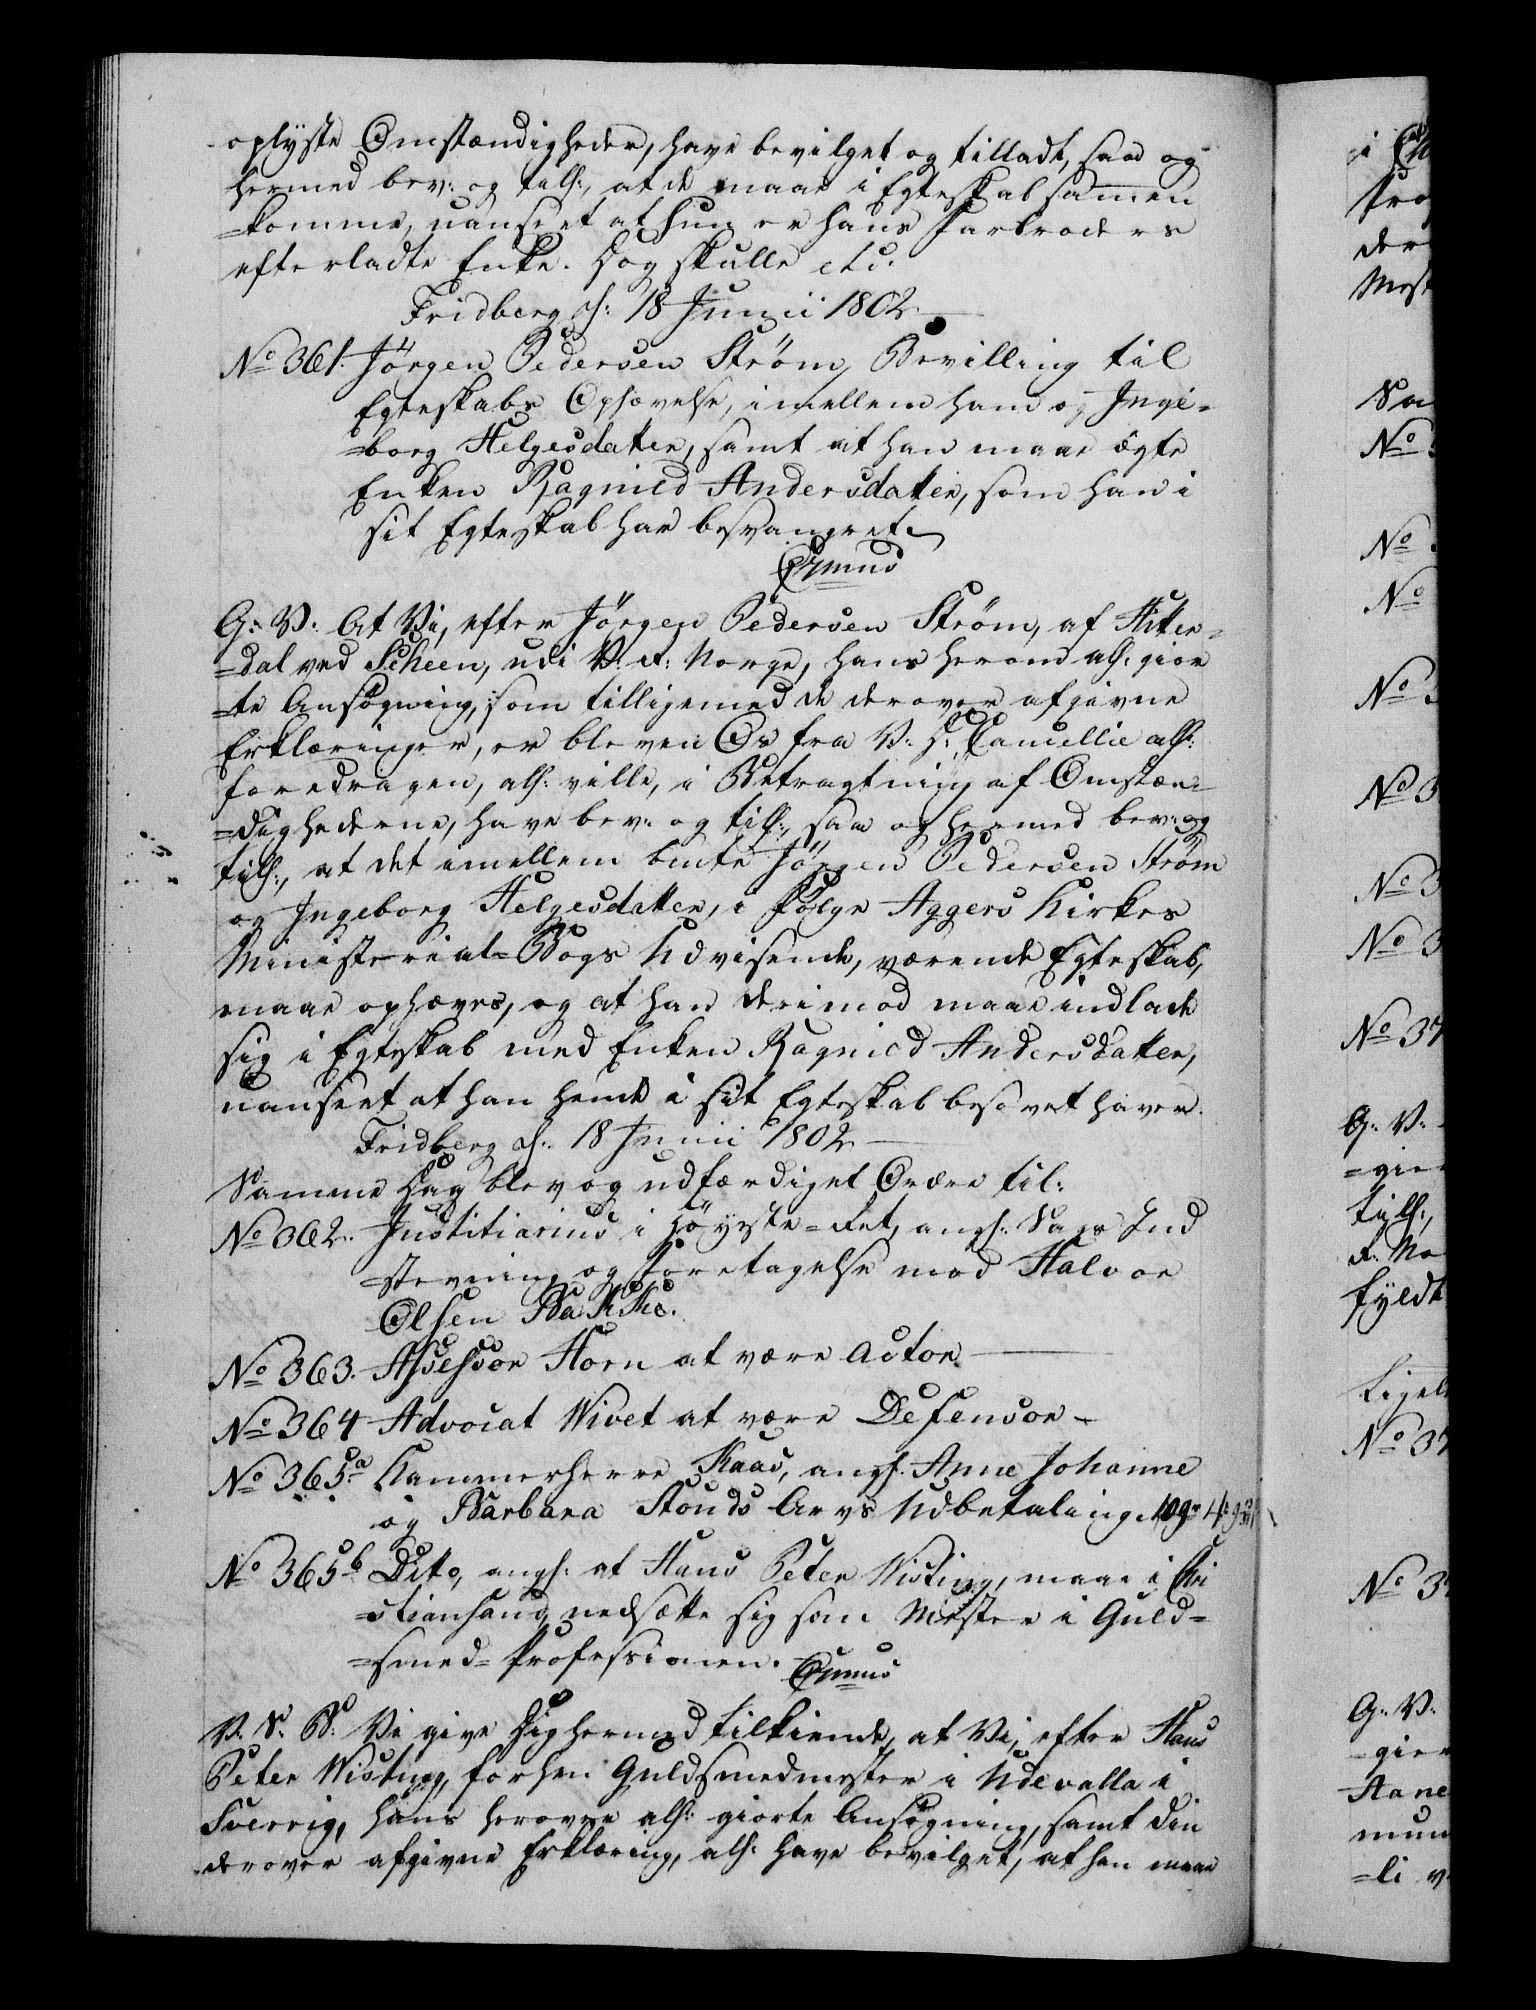 oplyste Omstændigheder, have bevilget og tilladt, saa og
hermed bev: og till:, at de maae i Egteskab sammen
=komme, uanseet at hun er hans Farbroders
efterladte Enke. Dog skulle etc.
Fridberg d: 18 Junii 1802
No 361. Jörgen Pedersen Ström, Bevilling til
Egteskabs Ophævelse, imellem ham og Inge=
=borg Helgesdatter, samt at han maae ægte
Enken Ragnild Andersdatter, som han i
sit Egteskab har besvangret.
Cr̅mus
G: V: At Vi, efter Jörgen Pedersen Ström, af Hiter=
=dal ved Scheen, udi V: R: Norge, hans herom all: gior
=te Ansögning, som tilligemed de derover afgivne
Erklæringer, er bleven Os fra V: D: Cancellie all:
foredragen, all: ville, i Betragtning af Omstæn=
=dighederne, have bev: og till:, saa og hermed bev: og
till:, at det imellem bmte Jörgen Pedersen Ström
og Ingeborg Helgesdatter, i Fölge Aggers Kirkes
Ministerial=Bogs Udvisende, værende Egteskab,
maae ophæves, og at han derimod maae indlade
sig i Egteskab med Enken Ragnild Andersdatter,
uanseet at han hende i sit Egteskab besovet haver.
Fridberg d: 18 Junii 1802
Samme Dag blev og udfærdiget Ordre til:
No 362. Justitiarius i Höyste=Ret, angl: Sags Ind
=stevning og Foretagelse mod Halvor
Olsen Bakke.
No 363. Assessor Horn at være Actor.
No 364 Advocat Wivet at være Defensor
No 365a Kammerherre Kaas, angl. Anne Johanne
og Barbara Stouds Arvs Udbetaling.
No 365b Dito, angl: at Hans Peter Wisting, maae i Chri
=stiansand nedsætte sig som Mester i Guld=
=smed=Professionen. Cr̅mus
V. S. B: Vi give Dig hermed tilkiende, at Vi, efter Hans
Peter Wisting, forhen Guldsmedmester i Udevalla i
Sverrig, hans herover all: giorte Ansögning, samt din
derover afgivne Erklæring, all: have bevilget, at han maae